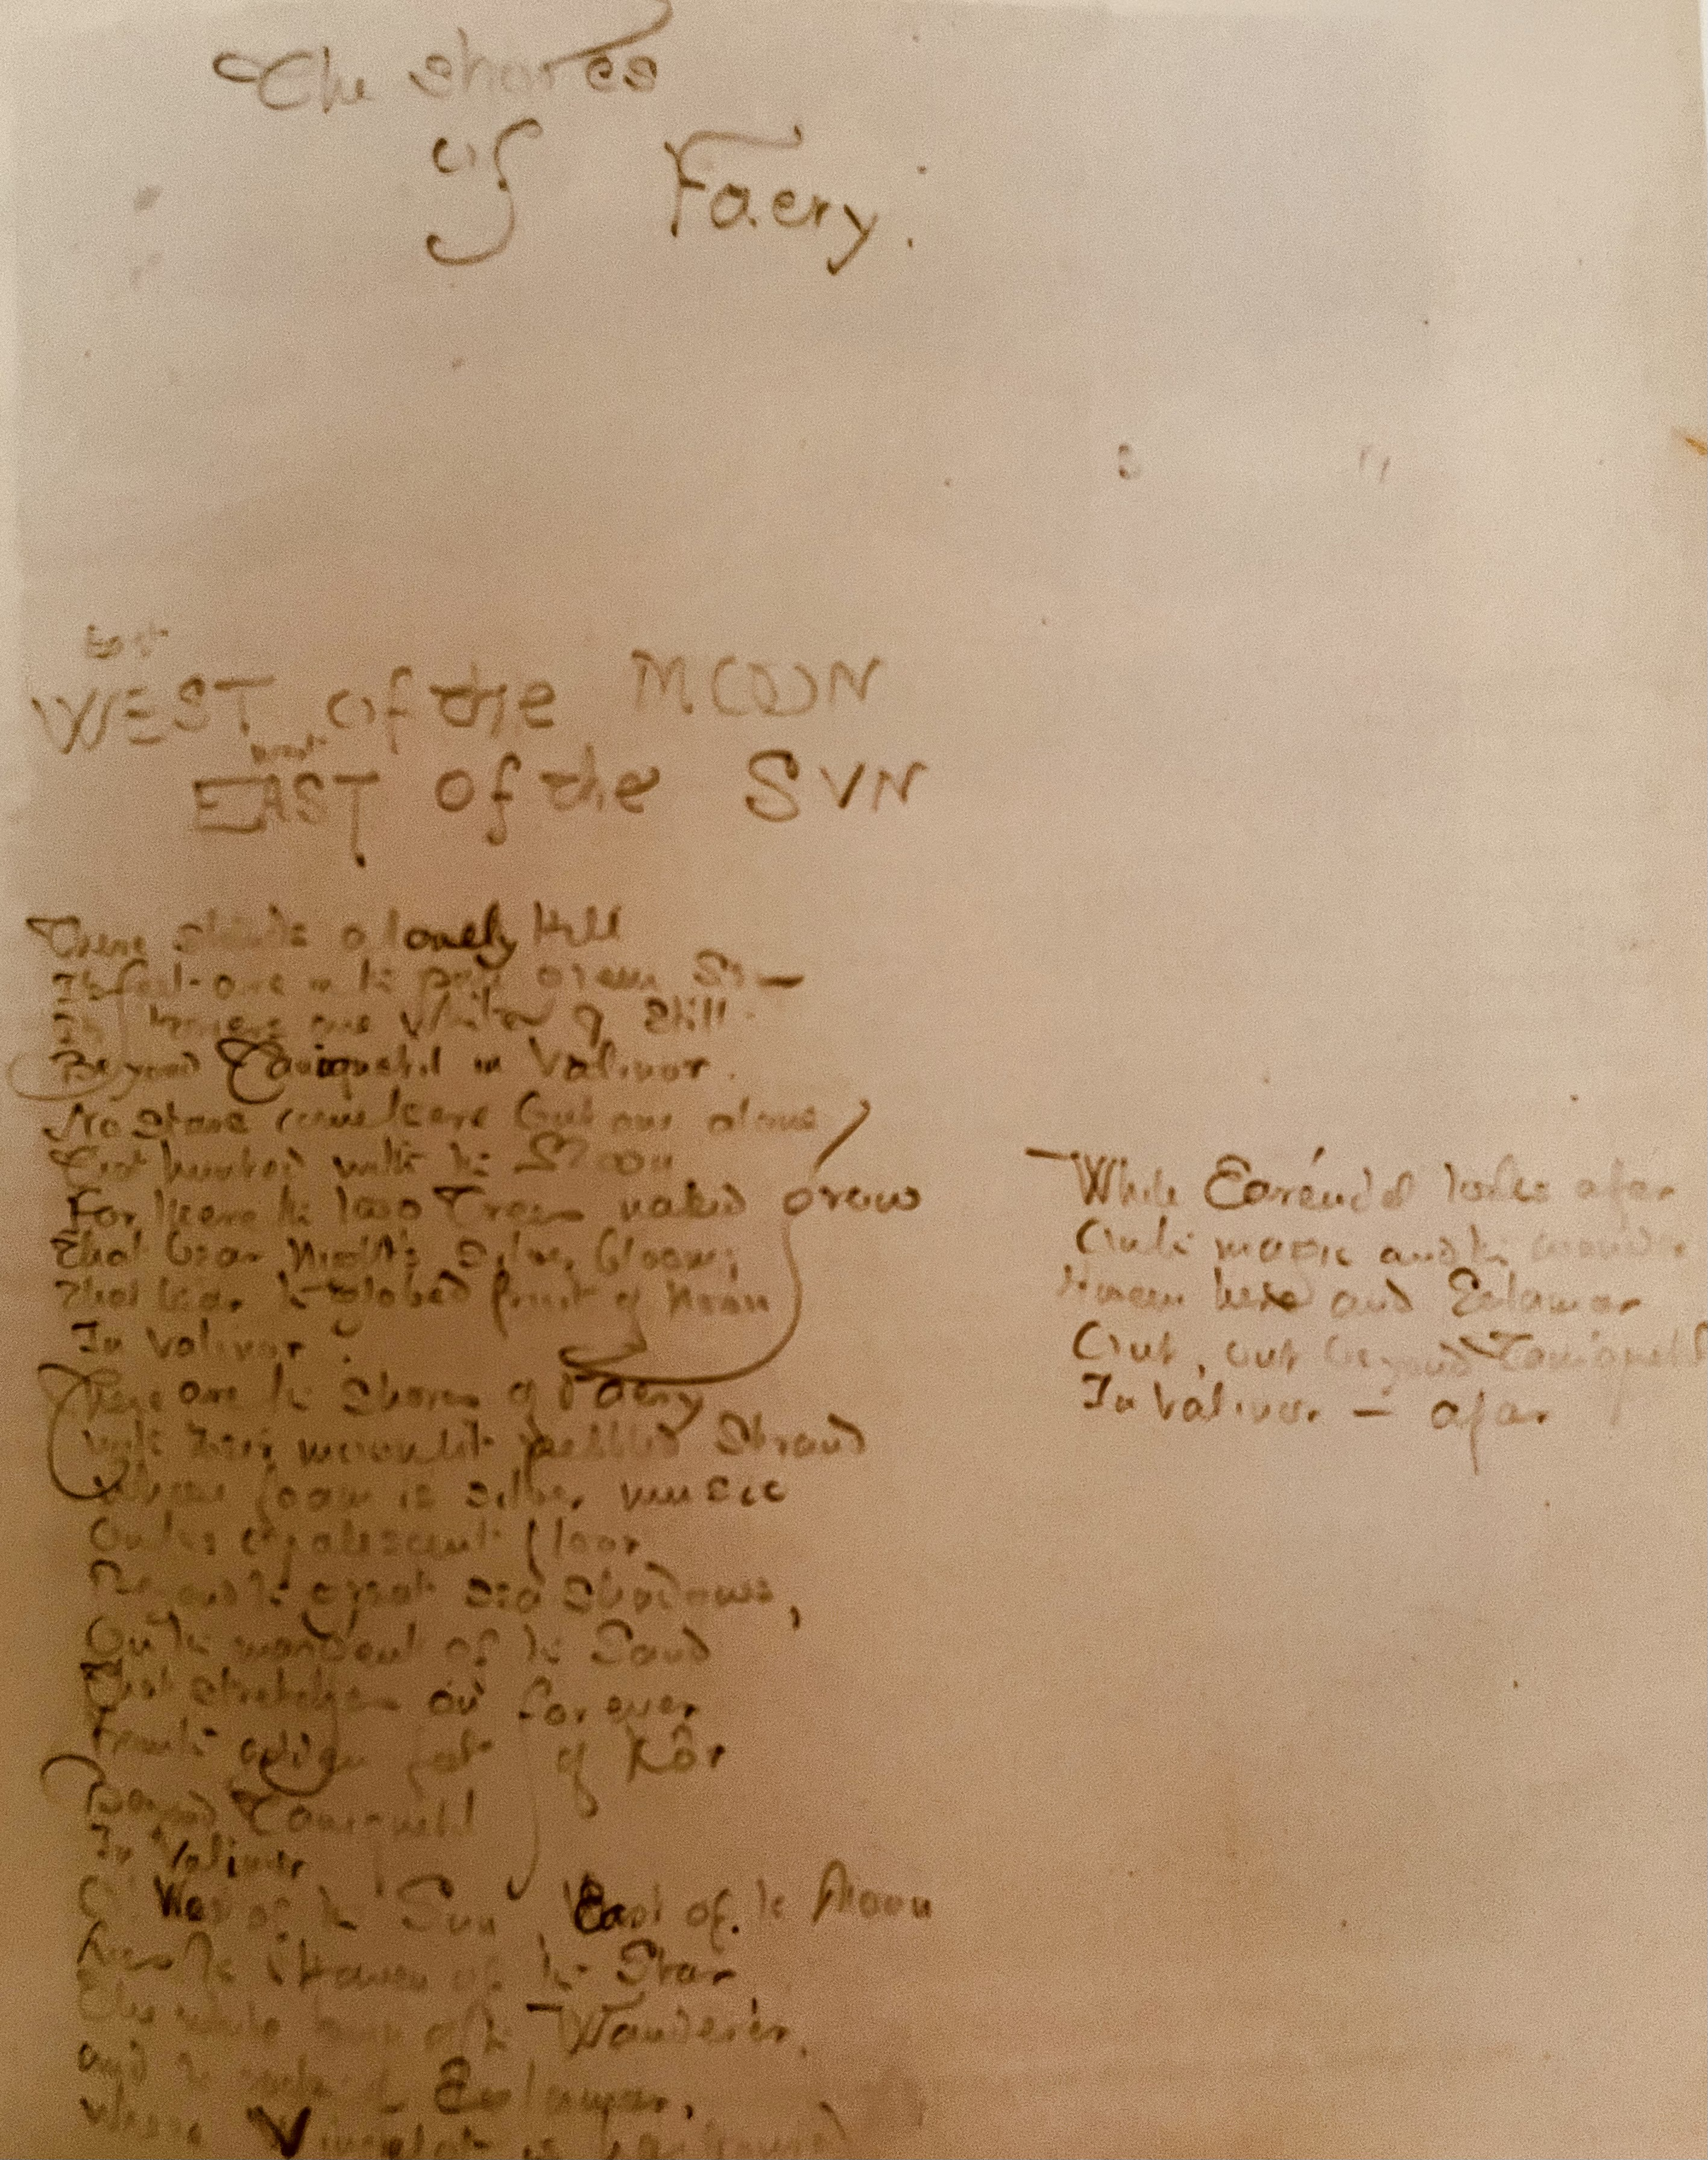 The shores
of Faery.
East
WEST of the MOON
West
EAST of the SVN
There stands a lonely hill
Its feet are in the pale green Sea
Its are white & still
Beyond Taniquetil in Valinor.
No stars come there but one alone
That hunted with the Moon
For there the two Trees naked grow
That bear Night's silver bloom;
That bear the globed fruit of Noon
In Valinor.
There are the shores of Faery
with their moonlit pebbled Strand
Whose foam is silver music
On the opalescent floor
Beyond the great sea shadows,
On the margent of the Sand
That stretches on for ever
From the golden feet of Kôr
Beyond Taniquetil
In Valinor
O! West of the Sun, East of the Moon
Lies the Haven of the Star
The white town of the Wanderer,
and the rocks of Eglamar,
Where Vingelot is harboured
While Earéndel looks afar
On the magic and the wonder
'Tween here and Eglamar
Out, out beyond Taniquetil
In Valinor – afar